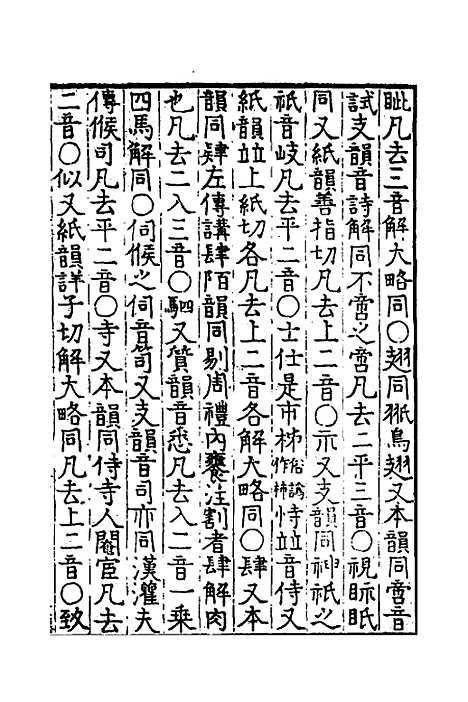 眦凡去三音解大略同〇翅同翄鳥翅又本韻同啻音
試支韻音詩解同不啻之啻凡去二平三音〇視眎眡
同又紙韻善指切凡去上二音〇亦又支韻同神祇之
祇音岐凡去平二音〇士仕是市柹俗譌作柿恃竝音侍又
紙韻竝上紙切各凡去上二音各解大略同〇肆又本
韻同肄左傳講肆陌韻同剔周禮內饔注割者肆解肉
也凡去二入三音〇駟又質韻音悉凡去入二音一乗
四馬解同〇伺候之伺音笥又支韻音司亦同漢灌夫
傳候司凡去平二音〇寺又本韻同侍寺人閹宦凡去
二音〇似又紙韻詳子切解大略同凡去上二音〇致